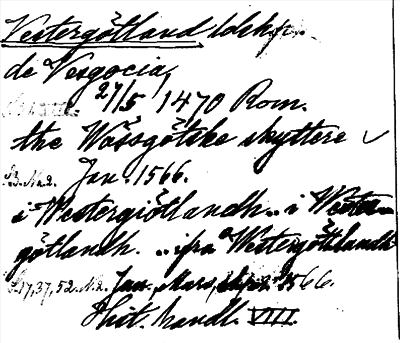 Vestergötland ldskp.
de Vesgocia,
27/5 1470 Rom.
the Wässgötske skyttere ✓
S. 2. Jan. 1566.
i Westergiötlandh.. i Wester-
götlandh. .. ifrå Westergötlandh
S. 17, 37, 52. Jan., Mars, 1566.
Hist. handl. VIII.